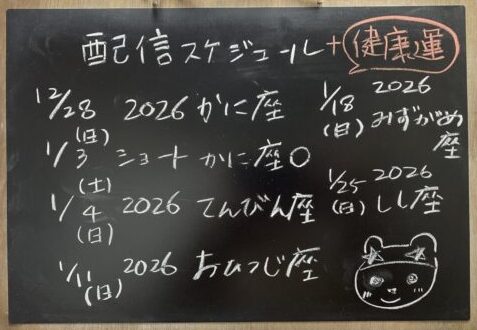 配信スケジュール+健康運
12/28(日) 2026 かに座
1/3(土) ショート かに座〇
1/4(日) 2026 てんびん座
1/11(日) 2026 おひつじ座
1/18(日) 2026 みずがめ座
1/25(日) 2026 しし座